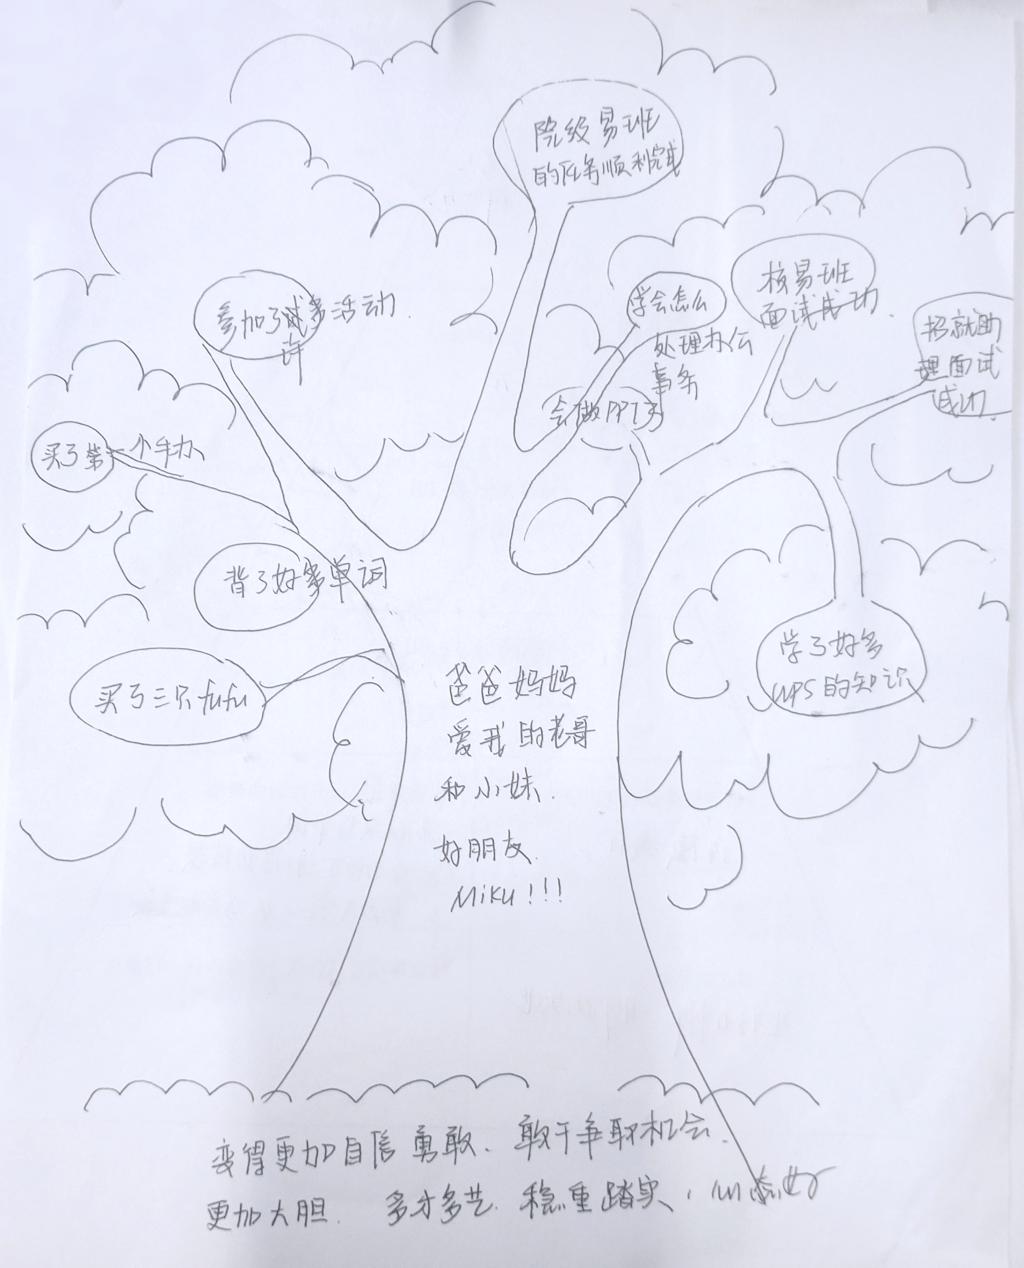 院级易班
的任务顺利完成
参加了许多活动.
学会怎么
处理办公
事务
校易班
面试成功.
招就助
理面试
成功.
会做PPT了
买了第一个手办
背了好多单词
买了三只fufu
学了好多
WPS的知识
爸爸妈妈
爱我的老哥
和小妹.
好朋友.
MIKU!!!
变得更加自信 勇敢、敢于争取机会.
更加大胆. 多才多艺. 稳重踏实, 心态好